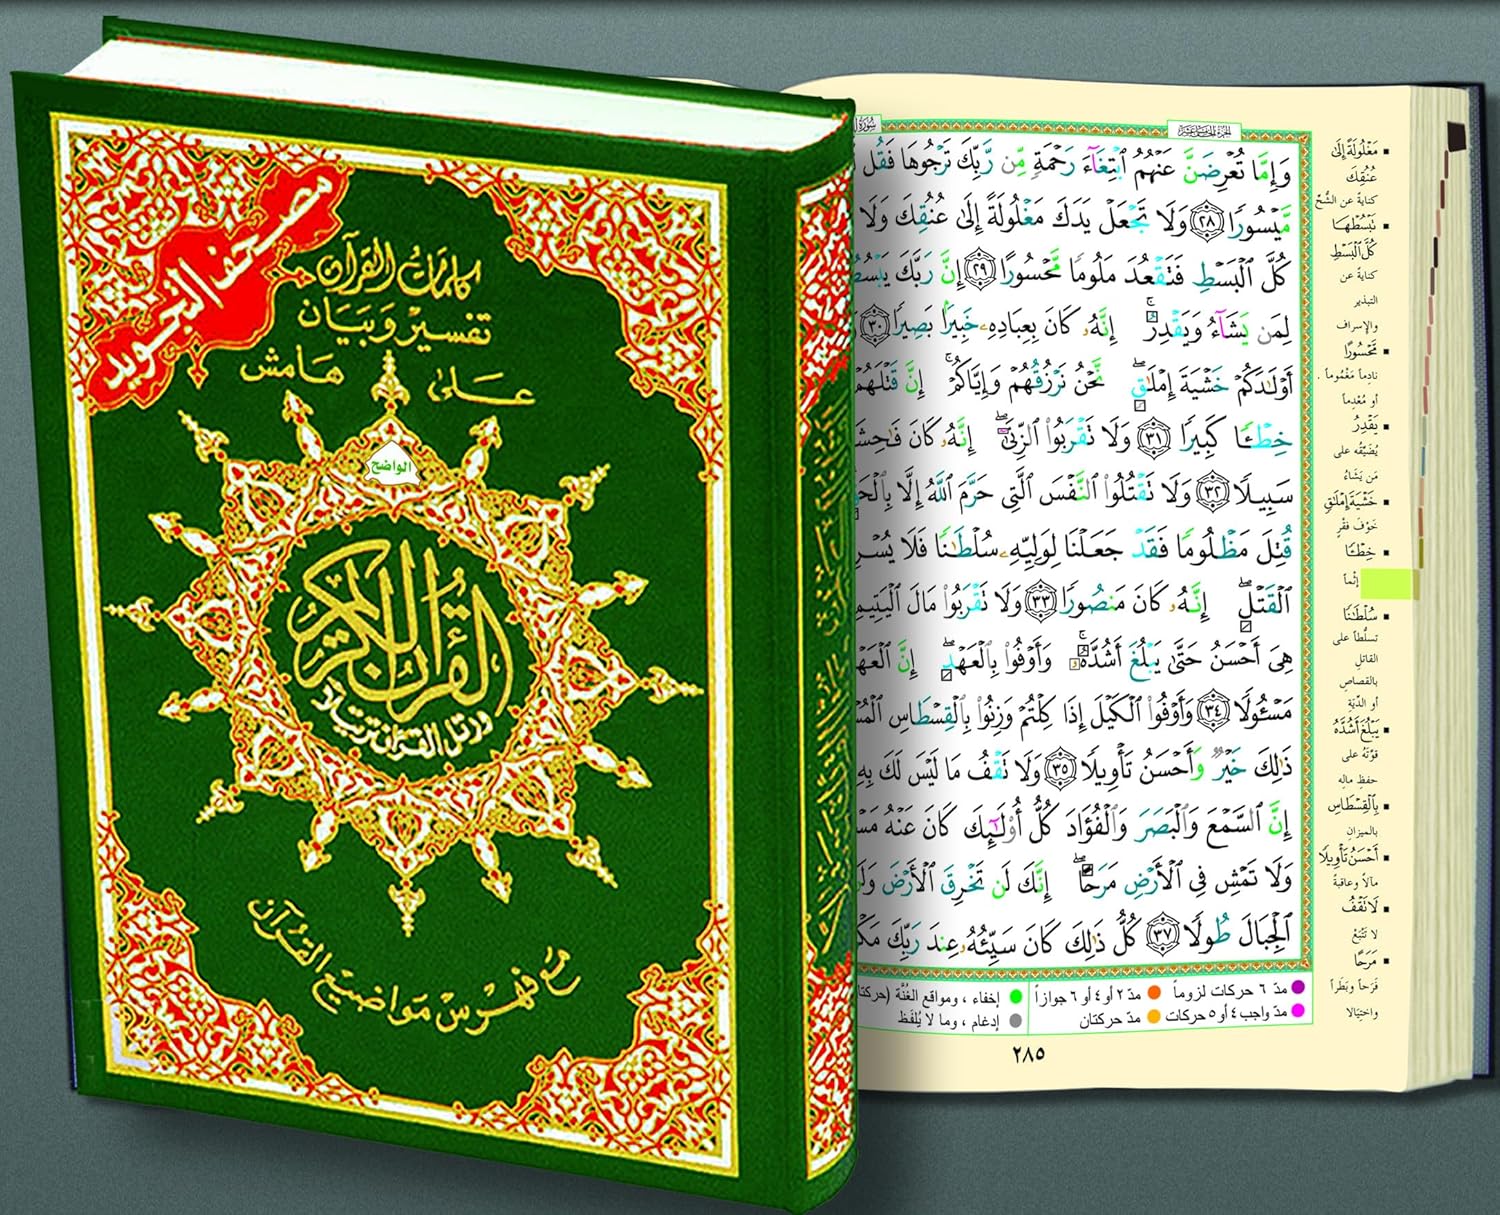 مصحف التجويد
كلمات القرآن
تفسير وبيان
على هامش
الواضح
القرآن الكريم
ورتل القرآن ترتيلا
مع فهرس مواضيع القرآن
الجزء الخامس عشر
سورة
وَإِمَّا تُعْرِضَنَّ عَنْهُمُ ٱبْتِغَآءَ رَحْمَةٍ مِّن رَّبِّكَ تَرْجُوهَا فَقُل
مَّيْسُورًا ٢٨ وَلَا تَجْعَلْ يَدَكَ مَغْلُولَةً إِلَىٰ عُنُقِكَ وَلَا
كُلَّ ٱلْبَسْطِ فَتَقْعُدَ مَلُومًا مَّحْسُورًا ٢٩ إِنَّ رَبَّكَ يَبْسُطُ
لِمَن يَشَآءُ وَيَقْدِرُ ۚ إِنَّهُۥ كَانَ بِعِبَادِهِۦ خَبِيرًۢا بَصِيرًا ٣٠
أَوْلَـٰدَكُمْ خَشْيَةَ إِمْلَـٰقٍ ۖ نَّحْنُ نَرْزُقُهُمْ وَإِيَّاكُمْ ۚ إِنَّ قَتْلَهُمْ
خِطْـًٔا كَبِيرًا ٣١ وَلَا تَقْرَبُوا۟ ٱلزِّنَىٰٓ ۖ إِنَّهُۥ كَانَ فَـٰحِشَ
سَبِيلًا ٣٢ وَلَا تَقْتُلُوا۟ ٱلنَّفْسَ ٱلَّتِى حَرَّمَ ٱللَّهُ إِلَّا بِٱلْحَ
قُتِلَ مَظْلُومًا فَقَدْ جَعَلْنَا لِوَلِيِّهِۦ سُلْطَـٰنًا فَلَا يُسْرِ
ٱلْقَتْلِ ۖ إِنَّهُۥ كَانَ مَنصُورًا ٣٣ وَلَا تَقْرَبُوا۟ مَالَ ٱلْيَتِيمِ
هِىَ أَحْسَنُ حَتَّىٰ يَبْلُغَ أَشُدَّهُۥ ۚ وَأَوْفُوا۟ بِٱلْعَهْدِ ۖ إِنَّ ٱلْعَهْ
مَسْـُٔولًا ٣٤ وَأَوْفُوا۟ ٱلْكَيْلَ إِذَا كِلْتُمْ وَزِنُوا۟ بِٱلْقِسْطَاسِ ٱلْمُسْ
ذَٰلِكَ خَيْرٌ وَأَحْسَنُ تَأْوِيلًا ٣٥ وَلَا تَقْفُ مَا لَيْسَ لَكَ بِهِ
إِنَّ ٱلسَّمْعَ وَٱلْبَصَرَ وَٱلْفُؤَادَ كُلُّ أُو۟لَـٰٓئِكَ كَانَ عَنْهُ مَسْ
وَلَا تَمْشِ فِى ٱلْأَرْضِ مَرَحًا ۖ إِنَّكَ لَن تَخْرِقَ ٱلْأَرْضَ وَلَن
ٱلْجِبَالَ طُولًا ٣٧ كُلُّ ذَٰلِكَ كَانَ سَيِّئُهُۥ عِندَ رَبِّكَ مَكْ
مَغْلُولَةً إِلَىٰ
عُنُقِكَ
كناية عن الشُّحّ
تَبْسُطْهَا
كُلَّ ٱلْبَسْطِ
كناية عن
التبذير
والإسراف
مَّحْسُورًا
نادِماً مَغْموماً .
أو مُعْدِماً
يَقْدِرُ
يُضَيِّقُه على
مَن يَشَاءُ
خَشْيَةَ إِمْلَـٰقٍ
خَوْفَ فقْرٍ
خِطْـًٔا
إثْماً
سُلْطَـٰنًا
تسلُّطاً على
القاتلِ
بالقصاصِ
أو الدِّيَةِ
يَبْلُغَ أَشُدَّهُ
قوَّتَهُ على
حفظِ مالِه
بِٱلْقِسْطَاسِ
بالميزانِ
أَحْسَنُ تَأْوِيلًا
مآلاً وعاقبةً
لَا تَقْفُ
لا تَتَّبِعْ
مَرَحًا
فَرَحاً وبَطَراً
واختِيالا
مدّ ٦ حركات لزوماً
مدّ ٢ أو ٤ أو ٦ جوازاً
إخفاء ، ومواقع الغُنَّة (حركتا
مدّ واجب ٤ أو ٥ حركات
مدّ حركتان
إدغام ، وما لا يُلفَظ
٢٨٥